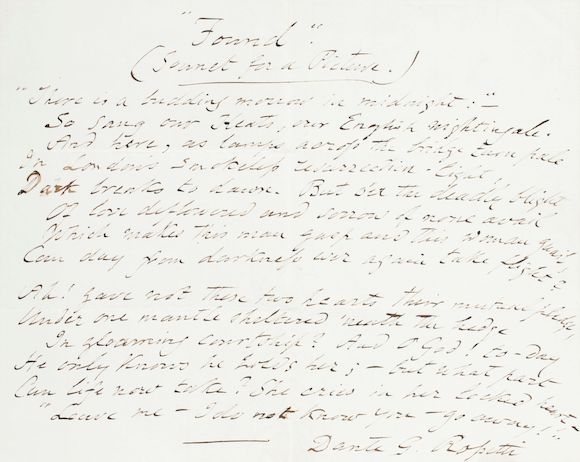 "Found".
(Sonnet for a Picture.)
"There is a budding morrow in midnight:"—
So sang our Keats, our English nightingale.
And here, as lamps across the bridge turn pale
In London's smokeless resurrection-light,
Dark breaks to dawn. But o'er the deadly blight
Of love deflowered and sorrow of none avail
Which makes this man gasp and this woman quail,
Can day from darkness ever again take flight?
Ah! gave not these two hearts their mutual pledge,
Under one mantle sheltered 'neath the hedge
In gloaming courtship? And O God! to-day
He only knows he holds her; – but what part
Can life now take? She cries in her locked heart,–
"Leave me – I do not know you – go away!"
Dante G. Rossetti